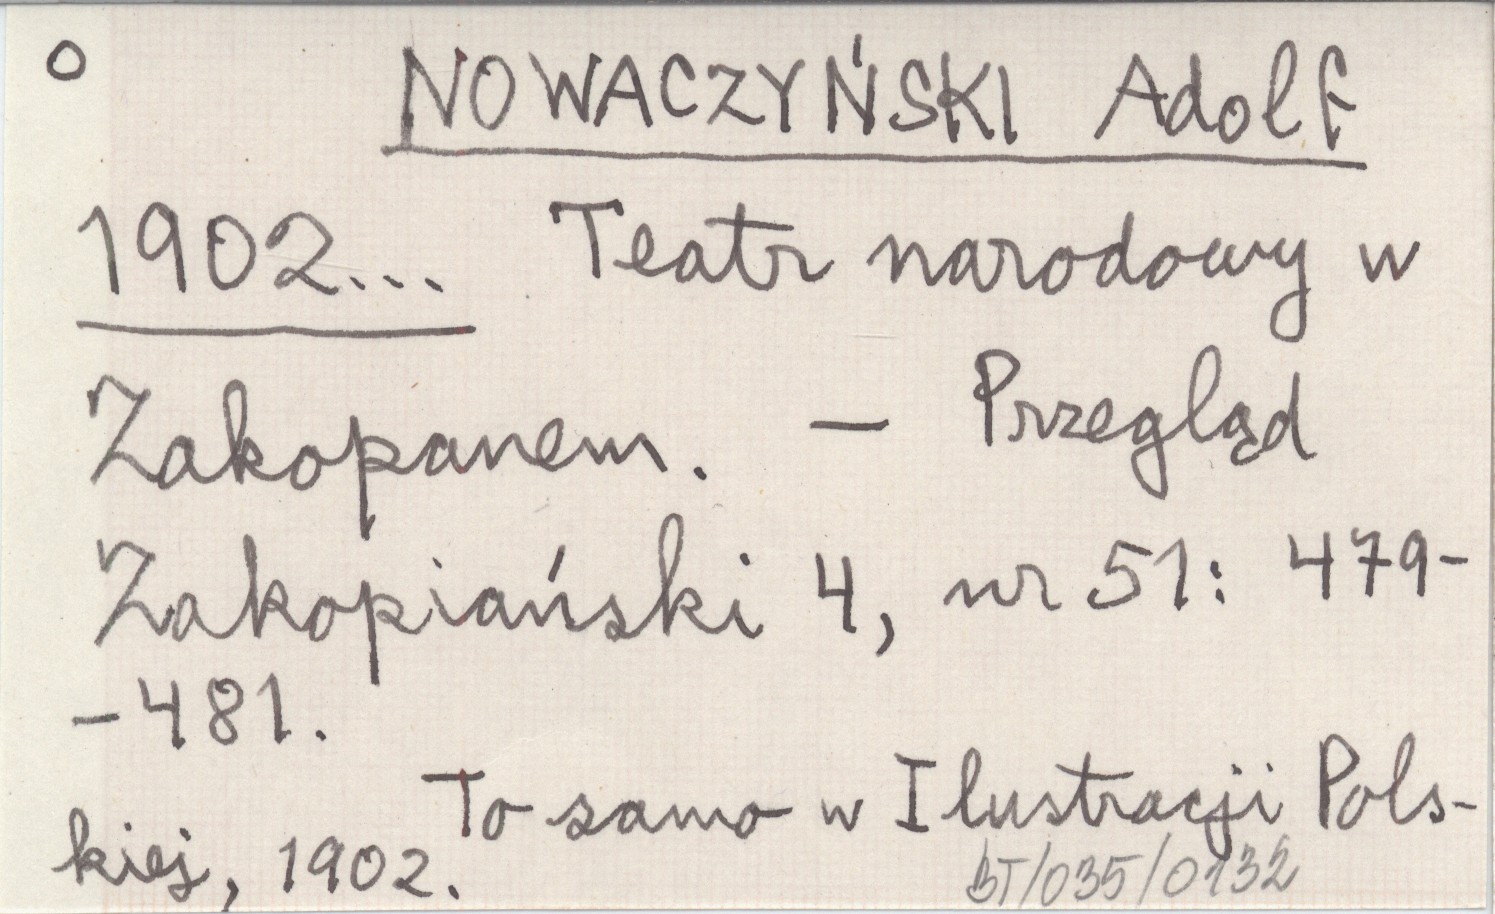 o NOWACZYŃSKI Adolf
1902... Teatr narodowy w
Zakopanem. — Przegląd
Zakopiański 4, nr 51: 479-
-481.
To samo w Ilustracji Pols-
kiej, 1902.
BT/035/0132